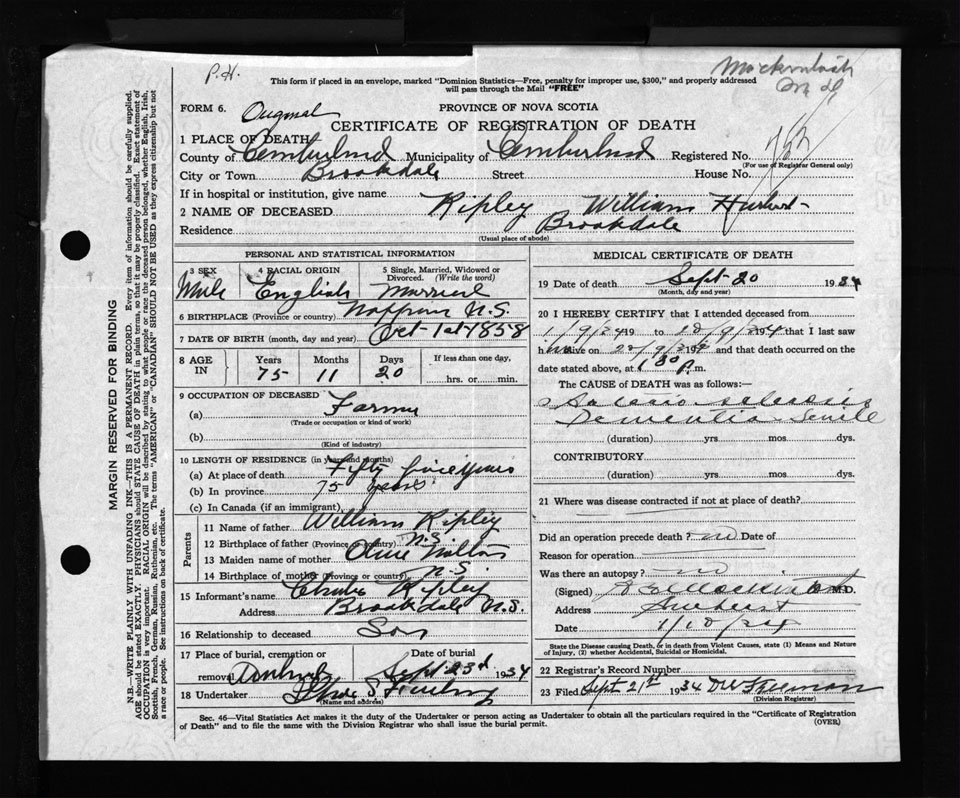 P.H.
This form if placed in an envelope, marked "Dominion Statistics—Free, penalty for improper use, $300," and properly addressed
will pass through the Mail "FREE"
Mackintosh
FORM 6. Original
PROVINCE OF NOVA SCOTIA
CERTIFICATE OF REGISTRATION OF DEATH
1 PLACE OF DEATH
County of Cumberland Municipality of Cumberland Registered No.
(For use of Registrar General only)
City or Town Brookdale Street House No.
If in hospital or institution, give name
2 NAME OF DECEASED Ripley William
Residence Brookdale
(Usual place of abode)
PERSONAL AND STATISTICAL INFORMATION
3 SEX 4 RACIAL ORIGIN 5 Single, Married, Widowed or Divorced. (Write the word)
Male English Married
6 BIRTHPLACE (Province or country) Nappan N.S.
7 DATE OF BIRTH (month, day and year) Oct-1st-1858
8 AGE IN Years Months Days If less than one day,
75 11 20 hrs. or min.
9 OCCUPATION OF DECEASED
(a) Farmer
(Trade or occupation or kind of work)
(b)
(Kind of industry)
10 LENGTH OF RESIDENCE (in years and months)
(a) At place of death Fifty five years
(b) In province 75 years
(c) In Canada (if an immigrant)
Parents
11 Name of father William Ripley
12 Birthplace of father (Province or country) N.S.
13 Maiden name of mother Olive
14 Birthplace of mother (Province or country) N.S.
15 Informant's name Ripley
Address Brookdale N.S.
16 Relationship to deceased Son
17 Place of burial, cremation or removal Date of burial
Amherst Sept 23rd 1934
18 Undertaker
(Name and address)
MEDICAL CERTIFICATE OF DEATH
19 Date of death Sept-20 1934
(Month, day and year)
20 I HEREBY CERTIFY that I attended deceased from
1/9/34 19 to 194 that I last saw
h alive on 19 and that death occurred on the
date stated above, at 1 30 p.m.
The CAUSE of DEATH was as follows:—
Dementia Senile
(duration) yrs. mos. dys.
CONTRIBUTORY
(duration) yrs. mos. dys.
21 Where was disease contracted if not at place of death?
Did an operation precede death? no Date of
Reason for operation
Was there an autopsy? no
(Signed) M.D.
Address Amherst
Date 1/10/34
State the Disease causing Death, or in death from Violent Causes, state (1) Means and Nature
of Injury, (2) whether Accidental, Suicidal or Homicidal.
22 Registrar's Record Number
23 Filed Sept 21st 1934 Freeman
(Division Registrar)
Sec. 46—Vital Statistics Act makes it the duty of the Undertaker or person acting as Undertaker to obtain all the particulars required in the "Certificate of Registration
of Death" and to file the same with the Division Registrar who shall issue the burial permit.
(OVER)
MARGIN RESERVED FOR BINDING
N.B.—WRITE PLAINLY WITH UNFADING INK—THIS IS A PERMANENT RECORD. Every item of information should be carefully supplied.
AGE should be stated EXACTLY. PHYSICIANS should STATE CAUSE OF DEATH in plain terms, so that it may be properly classified. Exact statement of
OCCUPATION is very important. RACIAL ORIGIN will be described by stating to what people or race the deceased person belonged, whether English, Irish,
Scottish, French, German, Russian, Ruthenian, etc. The terms "AMERICAN" or "CANADIAN" SHOULD NOT BE USED as they express citizenship but not
a race or people. See instructions on back of certificate.